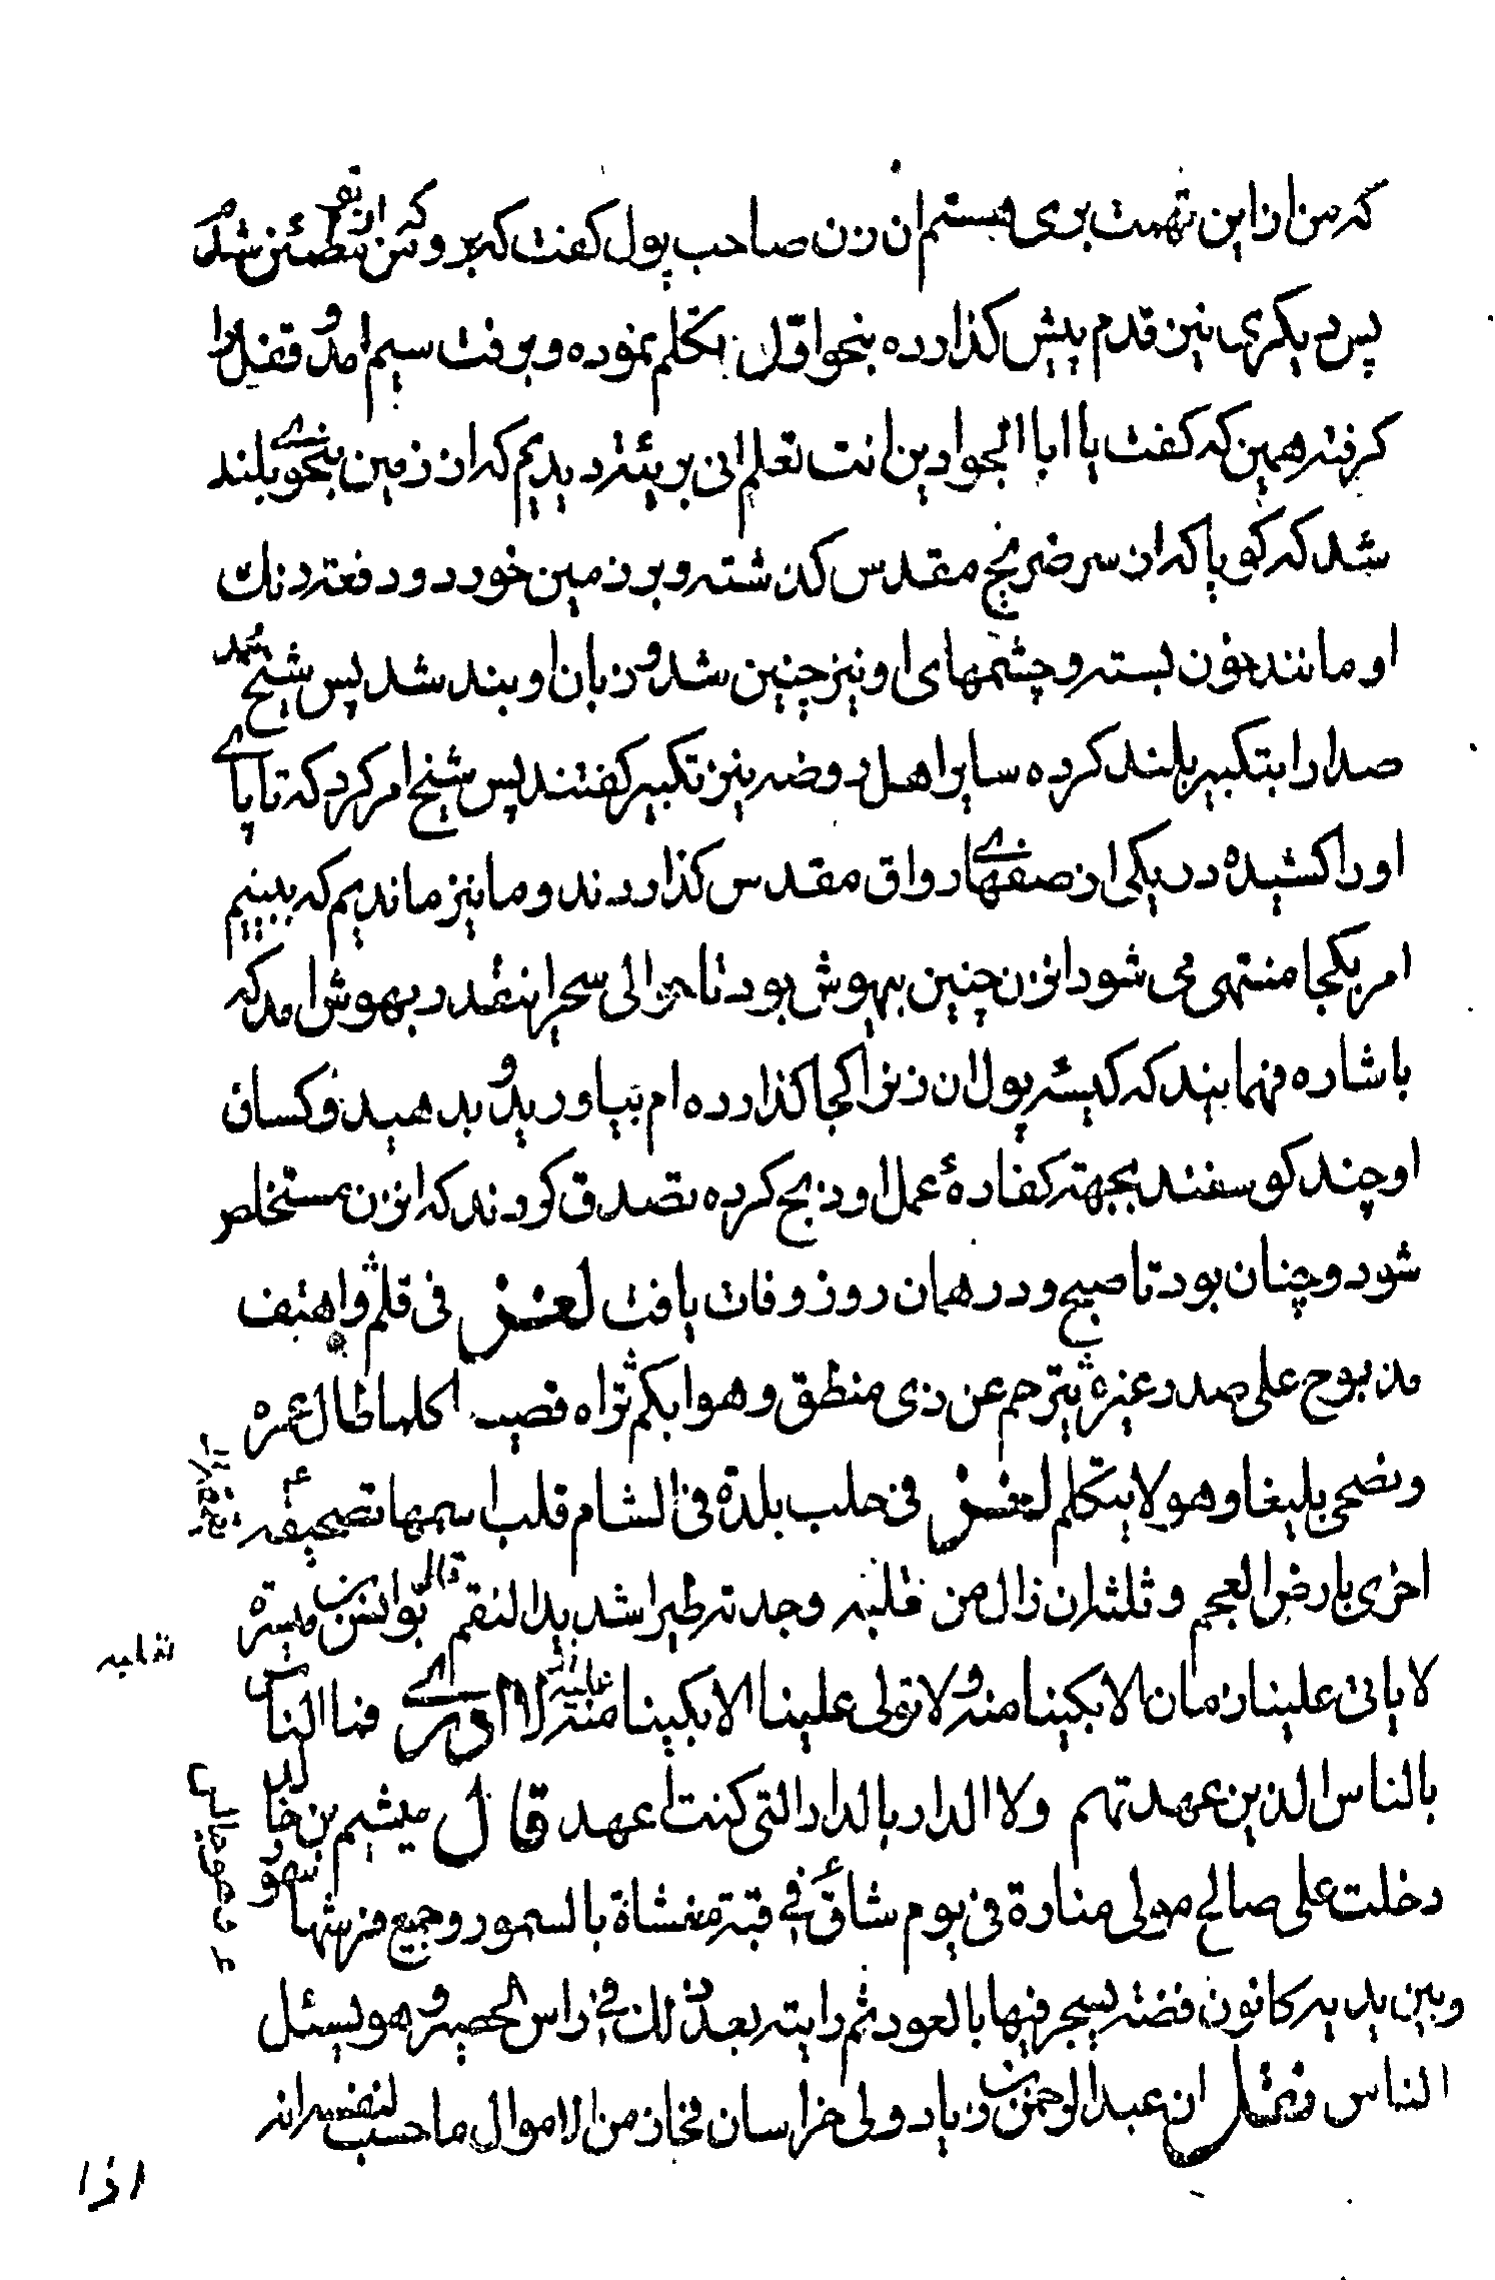 که من از این تهمت بری هستم ان زن صاحب پول کفت که برو که من از تو مطمئن شدم
پس دیکری نیز قدم پیش کذارده بنحو اوّل تکلم نموده و برفت سیم امد و قفل را
کرفته همین که کفت یا ابا الجوادین انت تعلم انی بریئة دیدیم که از زمین بنحوی بلند
شد که کویا که از سر ضریح مقدس کذشته و بر زمین خورد و دفعة رنک
او مانند خون بسته و چشمهای او نیز چنین شد و زبان او بند شد پس شیخ محمد
صدا را بتکبیر بلند کرده سایر اهل روضه نیز تکبیر کفتند پس شیخ امر کرد که تا پای
او را کشیده در یکی از صفهای رواق مقدس کذاردند و ما نیز ماندیم که ببینیم
امر بکجا منتهی می شود انزن چنین بیهوش بود تا حوالی سحر اینقدر بهوش امد که
باشاره فهمانید که کیسه پول ان زنرا کجا کذارده ام بیاورید و بدهید و کسان
او چند کوسفند بجهة کفاره عمل او ذبح کرده تصدق کردند که انزن مستخلص
شود و چنان بود تا صبح و در همان روز وفات یافت لغز فی قلم واهتف
مذبوح علی صدر غیره یترجم عن ذی منطق و هو ابکم تراه قصیرا کلما طال عمره
و یضحی بلیغا و هو لا یتکلم لغز فی حلب بلدة فی الشام قلب اسمها تصحیفه
اخری بارض العجم و ثلثه ان زال من قلبه وجدته طیرا شدید النقم قال ابو ایسن بن میسرة
ثعلبه
لا یاتی علینا زمان الا بکینا منه و لا تولی علینا الا بکینا علیه فما الناس
بالناس الذین عهدتهم ولا الدار بالدار التی کنت اعهد قال میثم بن خالد
دخلت علی صالح مولی منارة فی یوم شاق فی قبة مغشاة بالسمور و جمیع فرشها سمور
و بین یدیه کانون فضة یسجر فیها بالعود ثم رایته بعد ذلک فی راس الجسر و هو یسئل
الناس نقل ان عبد الرحمن بن زیاد ولی خراسان فحاز من الاموال ما حسب لنفسه انه
اذا